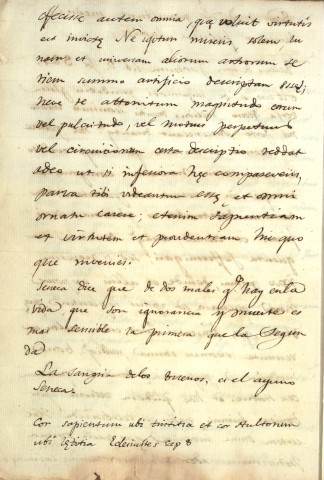 effecisse autem omnia, quæ voluit virtutis
est invictæ Ne igitur mireris, solem lu
nam et universam aliorum astrorum se
riem summo artificio descriptam esse;
neve te attonitum magnitudo eorum
vel pulcitudo, vel motus perpetuus
vel circuicionum certa descriptio reddat
adeo ut si inferiora hæc comparaveris,
parva tibi videantur esse, et omni
ornatu carere; etenim sapientiam
et virtutem et providentiam hic quo
que invenies.
Seneca dice que de dos males q.e hay en la
vida que son ignorancia y muerte es
mas sensible la primera que la Segun
da
La Sangria de los Buenos, es el ayuno
Seneca.
Cor sapientum ubi tristitia et cor stultorum
ubi lætitia cap 8